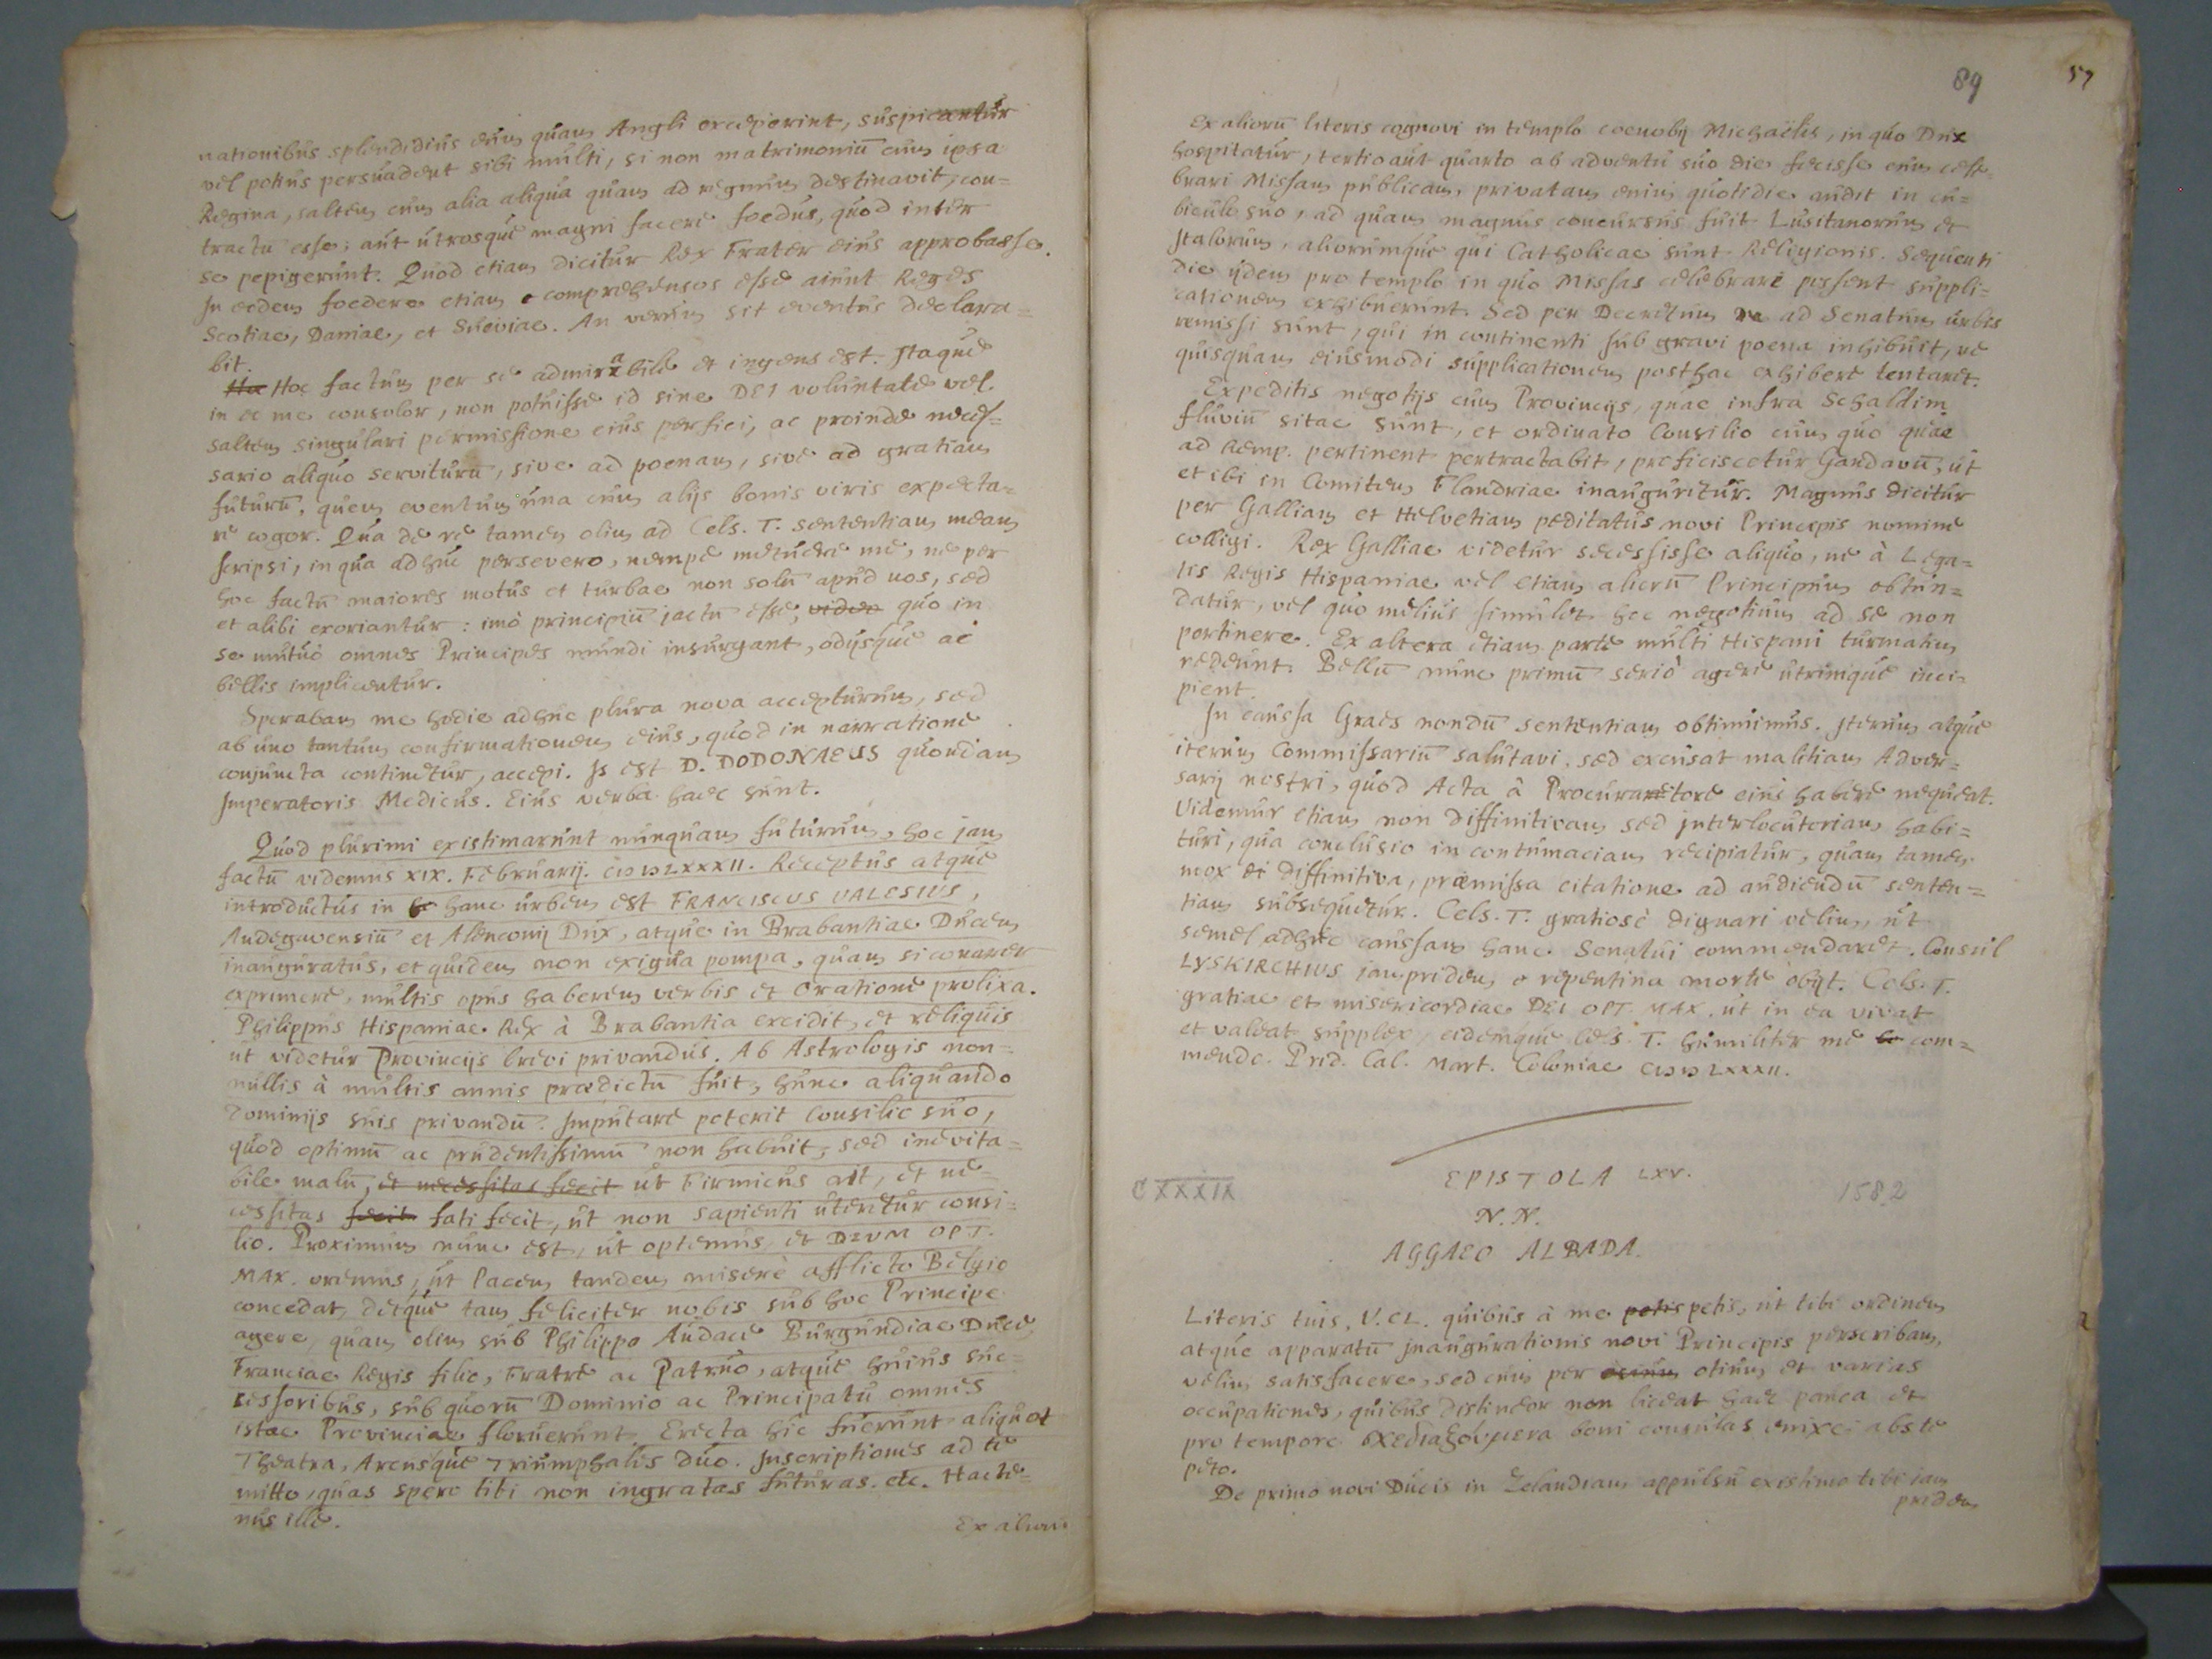 nationibus splendidius eum quam Angli exceperint, suspicantur
vel potius persuadent sibi multi, si non matrimoniū cum ipsa
Regina, saltem cum alia aliqua quam ad regnum destinavit, con=
tractū esse; aut utrosque magni facere foedus, quod inter
se pepigerunt. Quod etiam dicitur Rex Frater eius approbasse.
In eodem foedere etiam comprehensos esse aiunt Reges
Scotiae, Daniae, et Sueviae. An verum sit eventus declara=
bit.
Hoc Hoc factum per se admirabile et ingens est. Itaque
in eo me consolor, non potuisse id sine DEI voluntate vel
saltem singulari permissione eius perfici, ac proinde neces=
sario aliquo serviturū, sive ad poenam, sive ad gratiam
futurū, quem eventum una cum alijs bonis viris expecta=
re cogor. Qua de re tamen olim ad Cels. T. sententiam meam
scripsi, in qua adhuc persevero, nempe metuere me, ne per
hoc factū maiores motus et turbae non solū apud nos, sed
et alibi exoriantur: imò principiū jactū esse, quo in
se mutuò omnes Principes mundi insurgant, odijsque ac
bellis implicentur.
Sperabam me hodie adhuc plura nova accepturum, sed
ab uno tantum confirmationem eius, quod in narratione
conjuncta continetur, accepi. Is est D. DODONAEUS quondam
Imperatoris Medicus. Eius verba haec sunt.
Quod plurimi existimarunt nunquam futurum, hoc jam
factū videmus XIX. Februarij. CIↃ IↃ LXXXII. Receptus atque
introductus in hanc urbem est FRANCISCUS VALESIUS,
Andegavensiū et Alenconij Dux, atque in Brabantiae Ducem
inauguratus, et quidem non exigua pompa, quam si conarer
exprimere, multis opus haberem verbis et oratione prolixa.
Philippus Hispaniae Rex à Brabantia excidit, et reliquis
ut videtur Provincijs brevi privandus. Ab Astrologis non=
nullis à multis annis praedictū fuit, hunc aliquando
Dominijs suis privandū. Imputare poterit Consilio suo,
quod optimū ac prudentissimū non habuit, sed inevita=
bile malū, et necessitas fecit ut Firmicus ait, et ne=
cessitas fecit fati fecit, ut non sapienti uteretur consi=
lio. Proximum nunc est, ut optemus, et DEUM OPT.
MAX. oremus, ut Pacem tandem miserè afflicto Belgio
concedat, detque tam feliciter nobis sub hoc Principe
agere, quam olim sub Philippo Audace Burgundiae Duce,
Franciae Regis filio, Fratre ac Patruo, atque huius suc=
cessoribus, sub quorū Dominio ac Principatu omnes
istae Provinciae floruerunt. Erecta hic fuerunt aliquot
Theatra, Arcusque Triumphalis duo. Inscriptiones ad te
mitto, quas spero tibi non ingratas futuras. etc. Hacte=
nus ille.
Ex aliorū
89
57
Ex aliorū literis cognovi in templo coenobij Michaëlis, in quo Dux
hospitatur, tertio aut quarto ab adventu suo die fecisse eum cele=
brari Missam publicam, privatam enim quotidie audit in cu=
biculo suo, ad quam magnus concursus fuit Lusitanorum et
Italorum, aliorumque qui Catholicae sunt Religionis. Sequenti
die ijdem pro templo in quo Missas celebrare possent suppli=
cationem exhibuerunt. Sed per Decretum ad Senatum urbis
remissi sunt, qui in continenti sub gravi poena inhibuit, ne
quisquam eiusmodi supplicationem posthac exhibere tentaret.
Expeditis negotijs cum Provincijs, quae infra Scaldim
fluviū sitae sunt, et ordinato Consilio cum quo quae
ad Remp. pertinent pertractabit, proficiscetur Gandavū, ut
et ibi in Comitem Flandriae inauguretur. Magnus dicitur
per Galliam et Helvetiam peditatus novi Principis nomine
colligi. Rex Galliae videtur secessisse aliquo, ne à Lega=
tis Regis Hispaniae vel etiam aliorū Principum obtun=
datur, vel quo melius simulet hoc negotium ad se non
pertinere. Ex altera etiam parte multi Hispani turmatim
redeunt. Bellū nunc primū seriò agere utrimque inci=
pient.
In caussa Graes nondū sententiam obtinuimus. Iterum atque
iterum Commissariū salutavi, sed excusat malitiam Adver=
sarij nostri, quod Acta à Procuratore eius habere nequeat.
Videmur etiam non diffinitivam sed interlocutoriam habi=
turi, qua conclusio in contumaciam recipiatur, quam tamen
mox ei diffinitiva, praemissa citatione ad audiendū senten=
tiam subsequetur. Cels. T. gratiosè dignari velim, ut
semel adhuc caussam hanc Senatui commendaret. Consul
LYSKIRCHIUS jampridem repentina morte obijt. Cels. T.
gratiae et misericordiae DEI OPT. MAX. ut in ea vivat
et valeat supplex, eidemque Cels. T. humiliter me com=
mendo. Prid. Cal. Mart. Coloniae CIↃ IↃ LXXXII.
CXXXIX
EPISTOLA LXV.
1582
N. N.
AGGAEO ALBADA.
Literis tuis, V. CL. quibus à me petis petis, ut tibi ordinem
atque apparatū inaugurationis novi Principis perscribam,
velim satisfacere, sed cum per otium et varias
occupationes, quibus distineor non liceat haec pauca et
pro tempore σχεδιαζόμενα boni consulas enixè abs te
peto.
De primo novi Ducis in Zelandiam appulsu existimo tibi jam
pridem